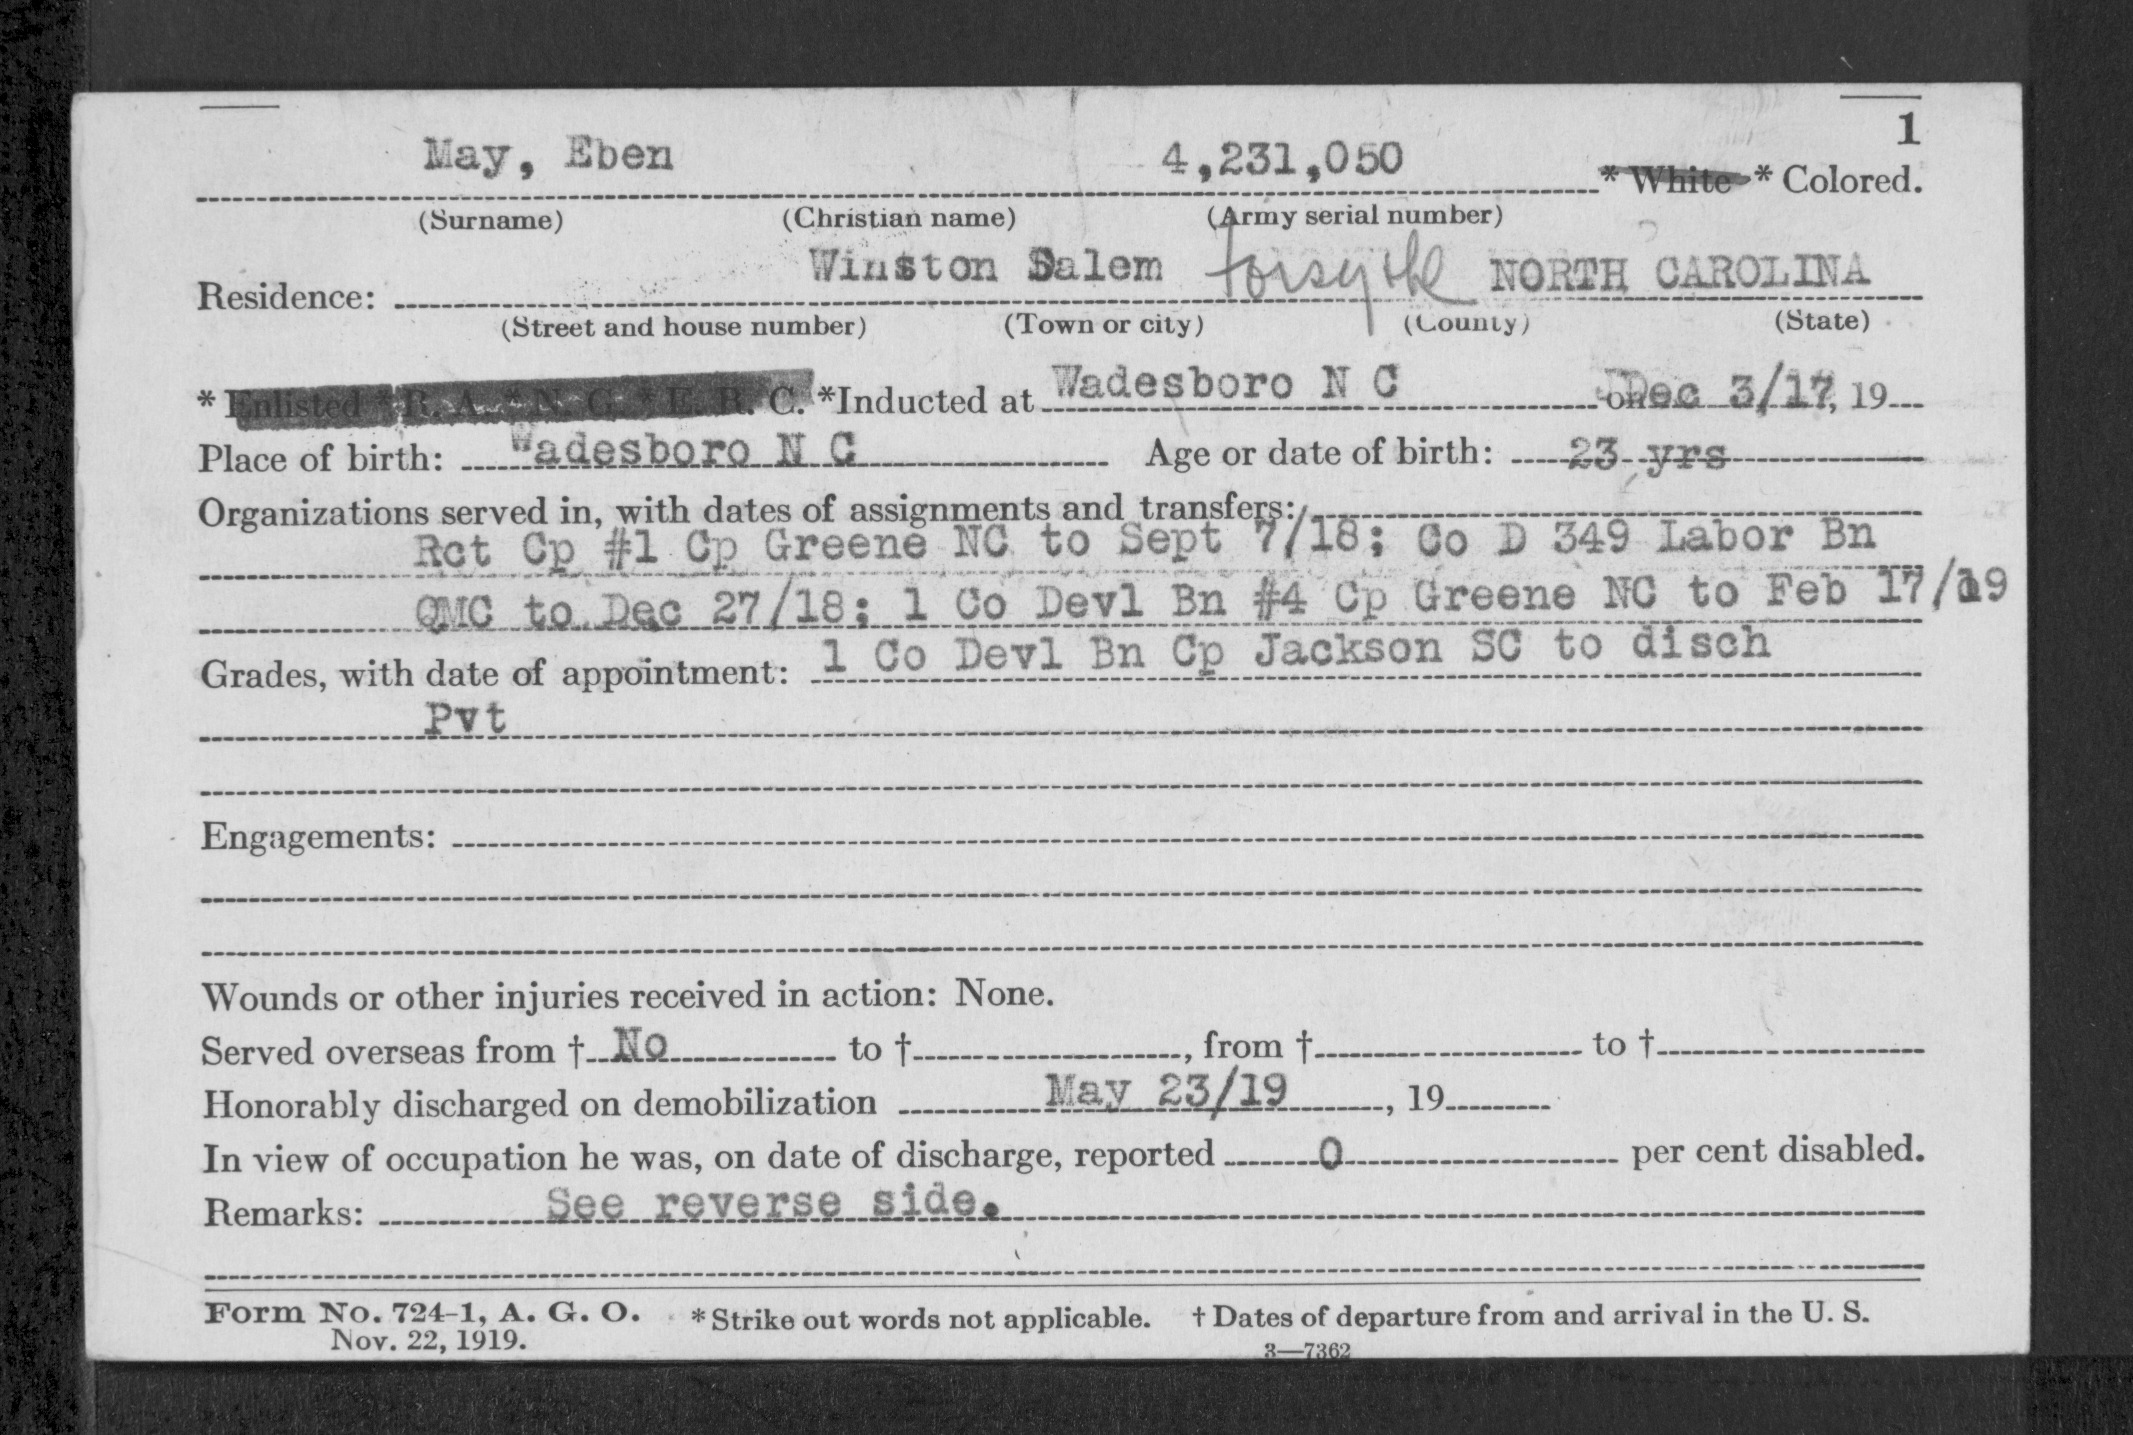 1
May, Eben 4,231,050 * White * Colored.
(Surname) (Christian name) (Army serial number)
Residence: Winston Salem Forsythe NORTH CAROLINA
(Street and house number) (Town or city) (County) (State)
* Enlisted * R. A. * N. G. * E. R. C. *Inducted at Wadesboro N C on Dec 3/17, 19
Place of birth: Wadesboro N C Age or date of birth: 23 yrs
Organizations served in, with dates of assignments and transfers:
Rct Cp #1 Cp Greene NC to Sept 7/18; Co D 349 Labor Bn
QMC to Dec 27/18; 1 Co Devl Bn #4 Cp Greene NC to Feb 17/19
Grades, with date of appointment: 1 Co Devl Bn Cp Jackson SC to disch
Pvt
Engagements:
Wounds or other injuries received in action: None.
Served overseas from † No to † , from † to †
Honorably discharged on demobilization May 23/19 , 19
In view of occupation he was, on date of discharge, reported 0 per cent disabled.
Remarks: See reverse side.
Form No. 724-1, A. G. O. * Strike out words not applicable. † Dates of departure from and arrival in the U. S.
Nov. 22, 1919. 3—7362